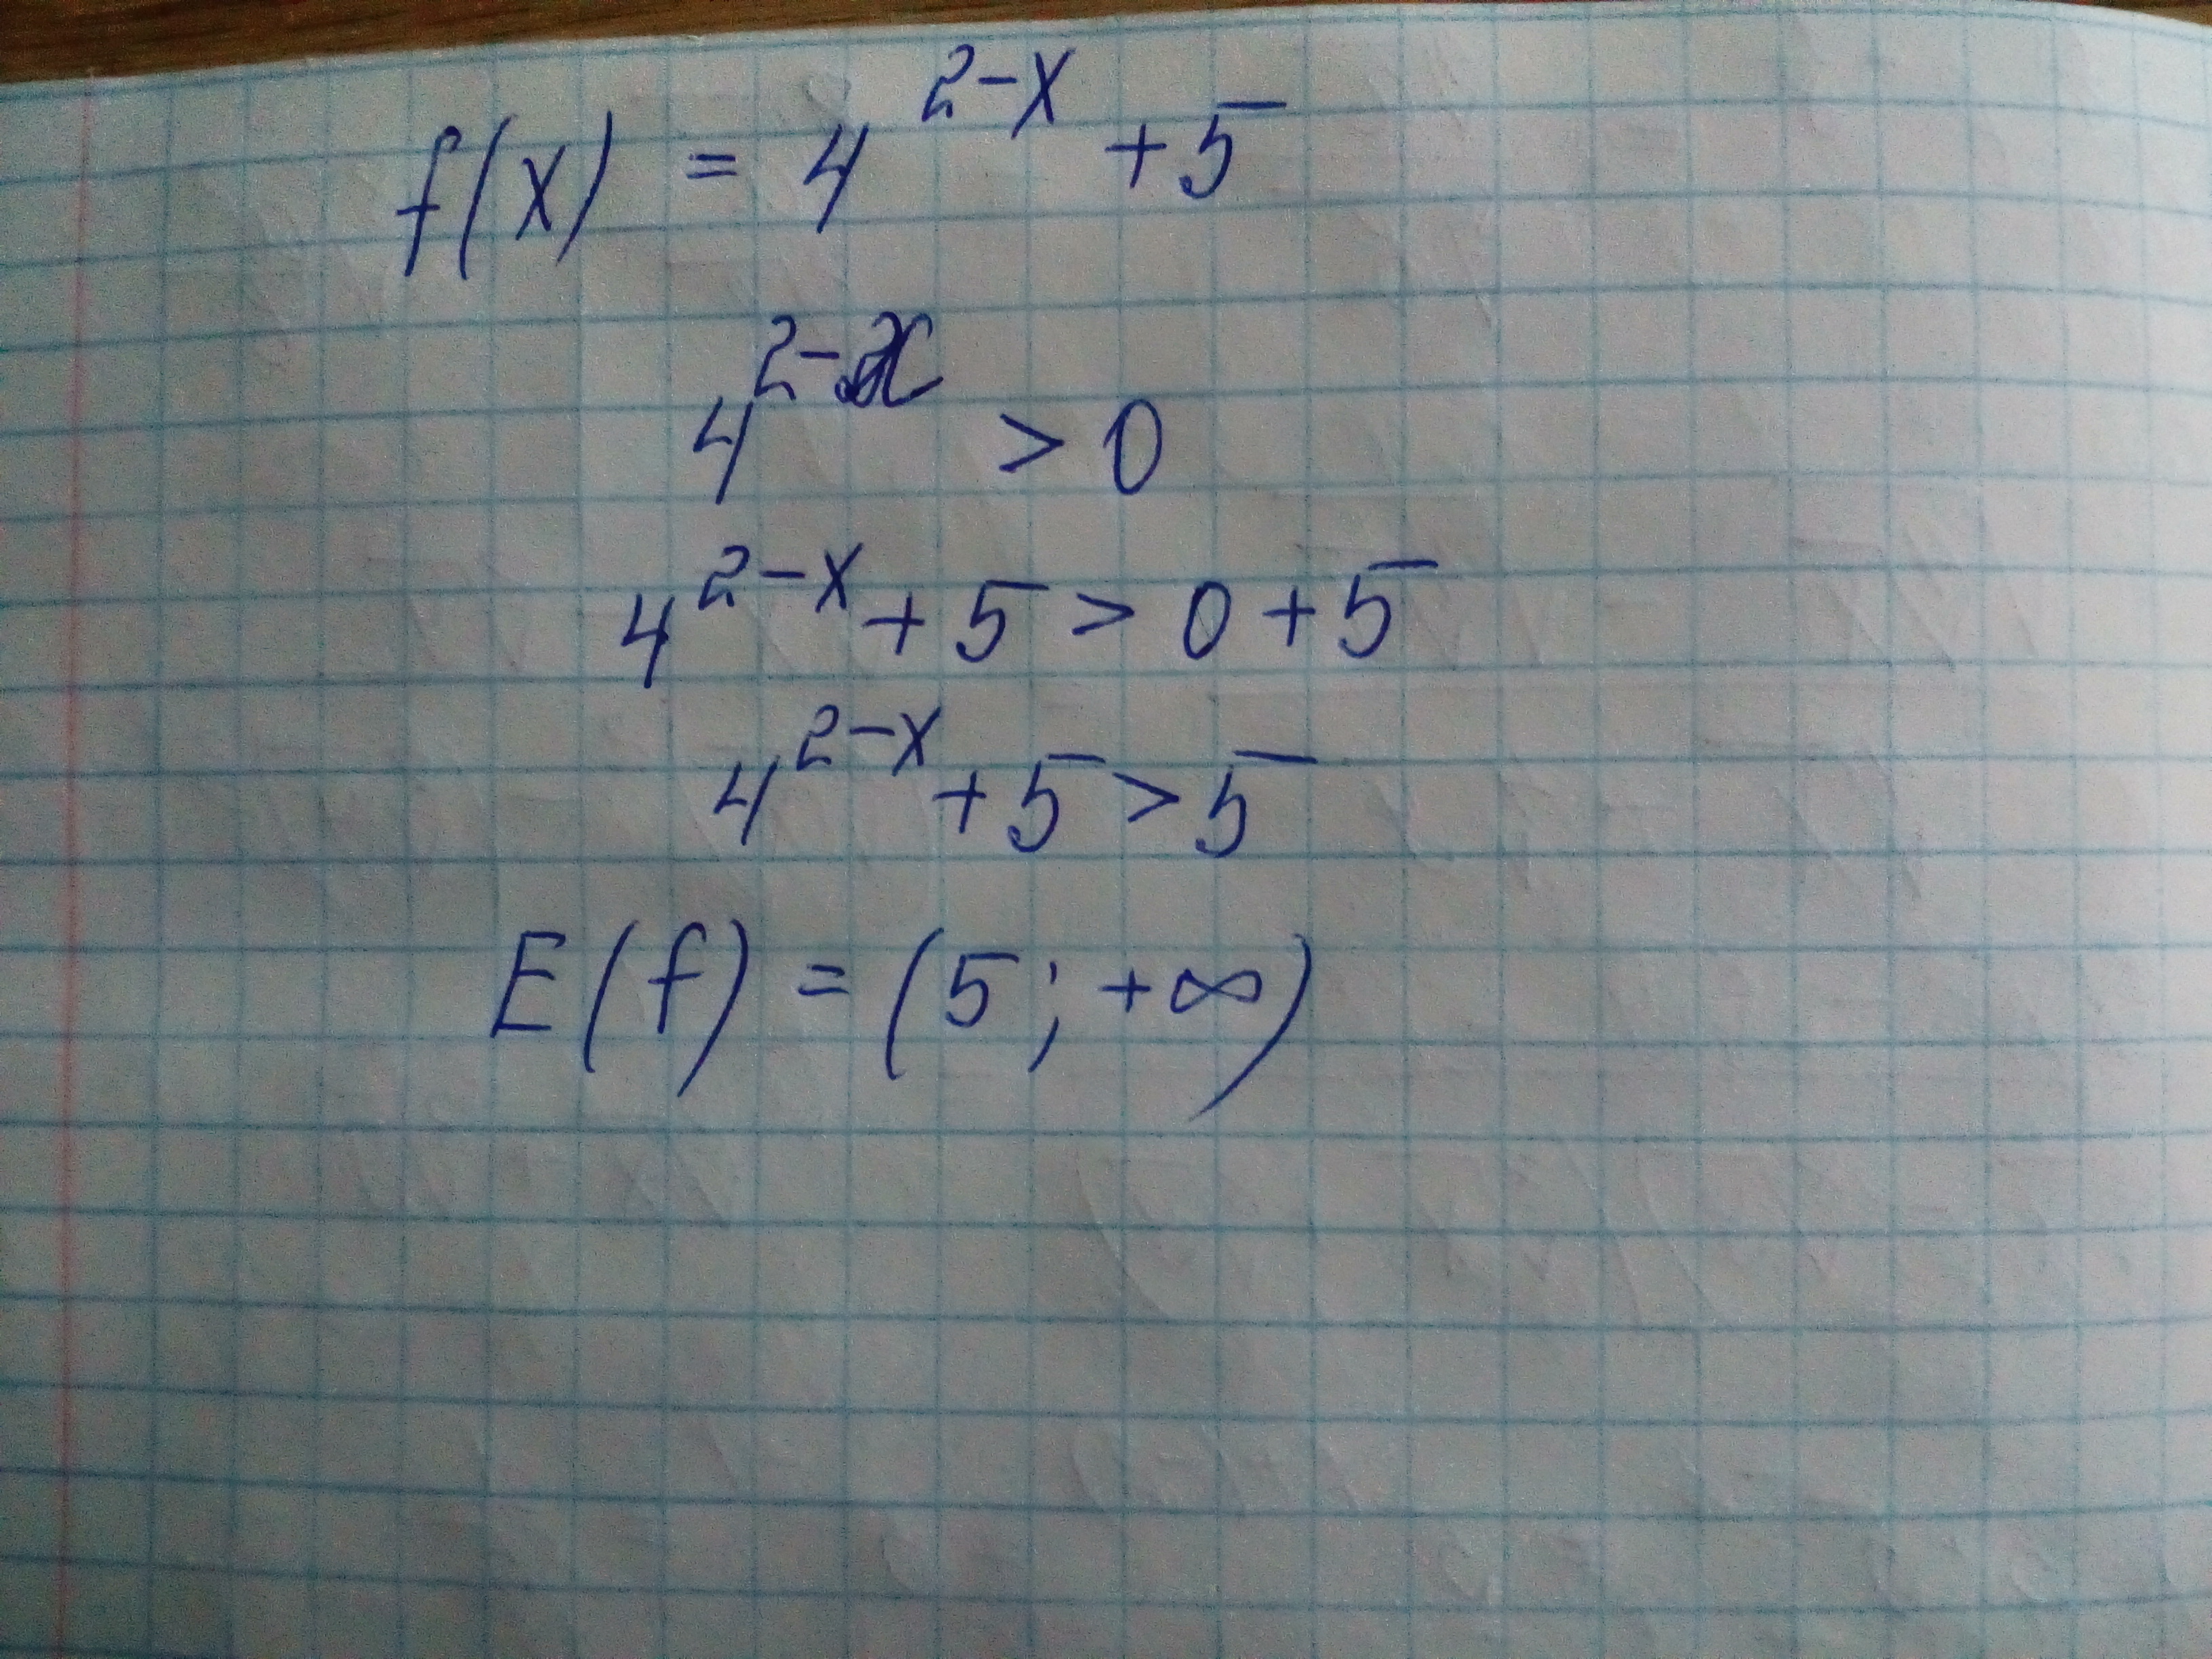 f(x) = 4^{2-x} + 5
4^{2-x} > 0
4^{2-x} + 5 > 0 + 5
4^{2-x} + 5 > 5
E(f) = (5; +∞)